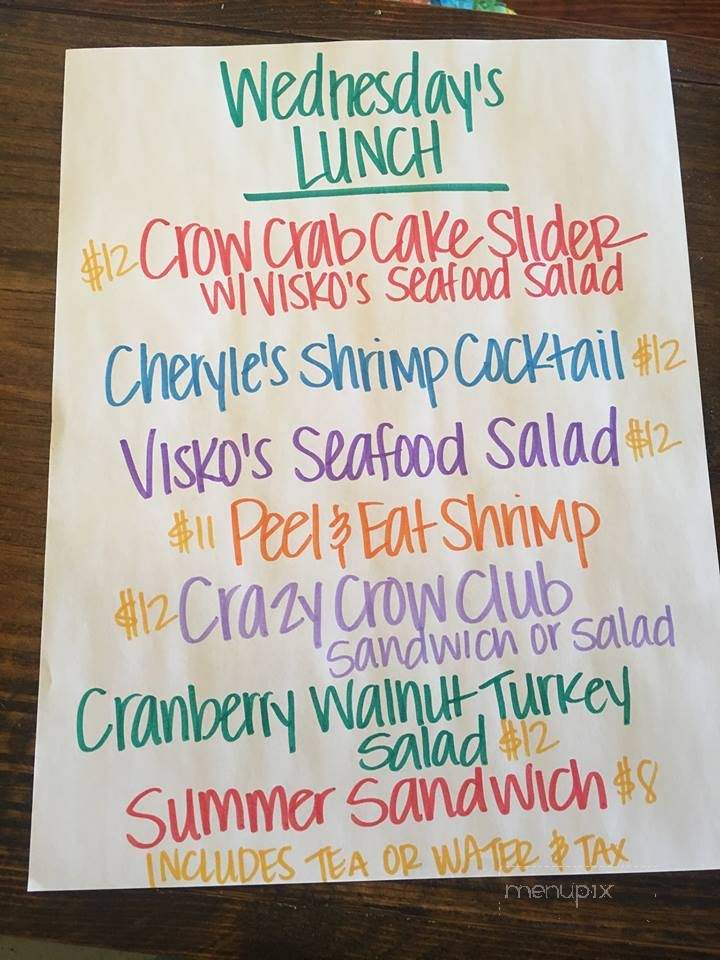 Wednesday's
LUNCH
$12 Crow Crab Cake Slider
W/ VISKO'S Seafood Salad
Cheryle's Shrimp Cocktail $12
VISKO'S Seafood Salad $12
$11 Peel & Eat Shrimp
$12 Crazy Crow Club
Sandwich or Salad
Cranberry Walnut Turkey
Salad $12
Summer Sandwich $8
INCLUDES TEA OR WATER & TAX
menupix